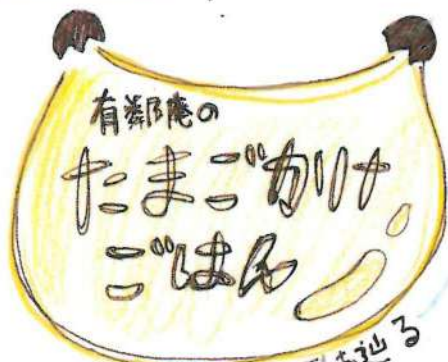 有鄰庵の
たまごかけ
ごはん
辿る